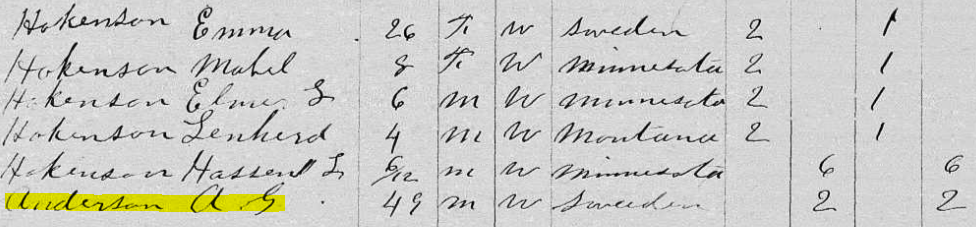 Hokenson Emma 26 F W Sweden 2 1
Hokenson Mabel 8 F W Minnesota 2 1
Hokenson Elmer L 6 m W Minnesota 2 1
Hokenson Lenherd 4 m W Montana 2 1
Hokenson Hassend L 6/12 m W Minnesota 6 6
Anderson A G 49 m W Sweden 2 2